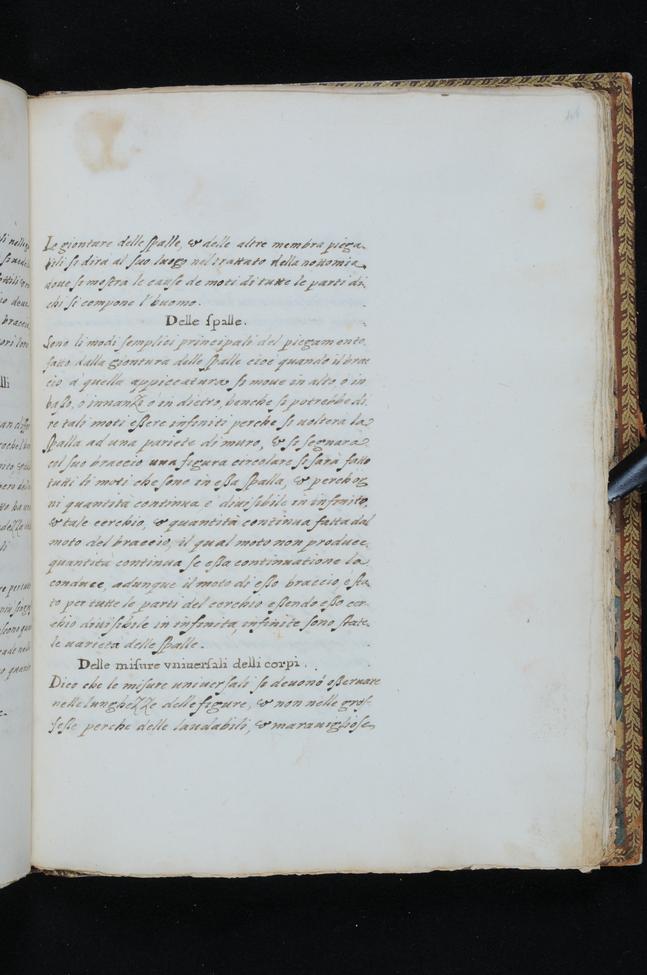 Le gionture delle spalle, & delle altre membra piega-
bili si dirà al suo luogo nel trattato della nottomia
doue si mostra le cause de moti di tutte le parti di
chi si compone l'huomo.
Delle spalle.
Sono li modi semplici principali del piegamento
fatto dalla giontura delle spalle cioè quando il brac
cio à quella appiccatura si moue in alto, ò in
basso, ò innanzi ò in dietro, benche si potrebbe di
re tali moti essere infiniti perche se uolterà la
spalla ad una pariete di muro, & si segnarà
col suo braccio una figura circolare si sarà fatto
tutti li moti che sono in essa spalla, & perche og
ni quantità continua è diuisibile in infinito,
& tale cerchio, & quantità continua fatta dal
moto del braccio, il qual moto non produce
quantità continua se essa continuatione la
conduce, adunque il moto di esso braccio è sta
to per tutte le parti del cerchio essendo esso cer-
chio diuisibile in infinita, infinite sono state
le uarietà delle spalle.
Delle misure vniuersali delli corpi.
Dico che le misure uniuersali si deuono osseruare
nelle lunghezze delle figure, & non nelle gros-
sesse perche delle laudabili, & marauigliose